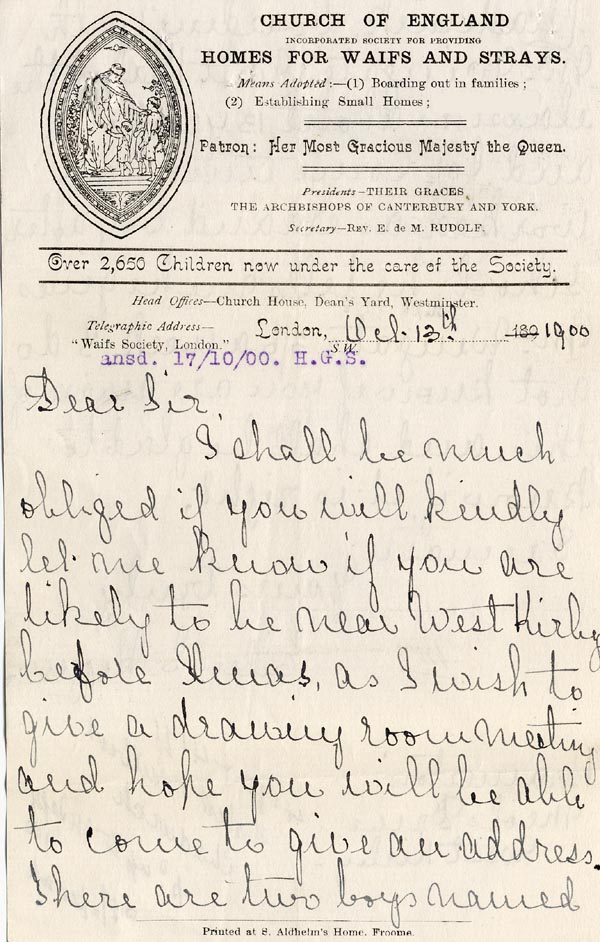 CHURCH OF ENGLAND
INCORPORATED SOCIETY FOR PROVIDING
HOMES FOR WAIFS AND STRAYS.
Means Adopted:—(1) Boarding out in families;
(2) Establishing Small Homes;
Patron: Her Most Gracious Majesty the Queen.
Presidents—THEIR GRACES
THE ARCHBISHOPS OF CANTERBURY AND YORK.
Secretary—REV. E. de M. RUDOLF.
Over 2,650 Children now under the care of the Society.
Head Offices—Church House, Dean's Yard, Westminster.
Telegraphic Address—
"Waifs Society, London."
London, Oct. 13th 189 1900
S.W.
ansd. 17/10/00. H.G.S.
Dear Sir,
I shall be much
obliged if you will kindly
let me know if you are
likely to be near West Kirby
before Xmas, as I wish to
give a drawing room meeting
and hope you will be able
to come to give an address.
There are two boys named
Printed at S. Aldhelm's Home, Frome.